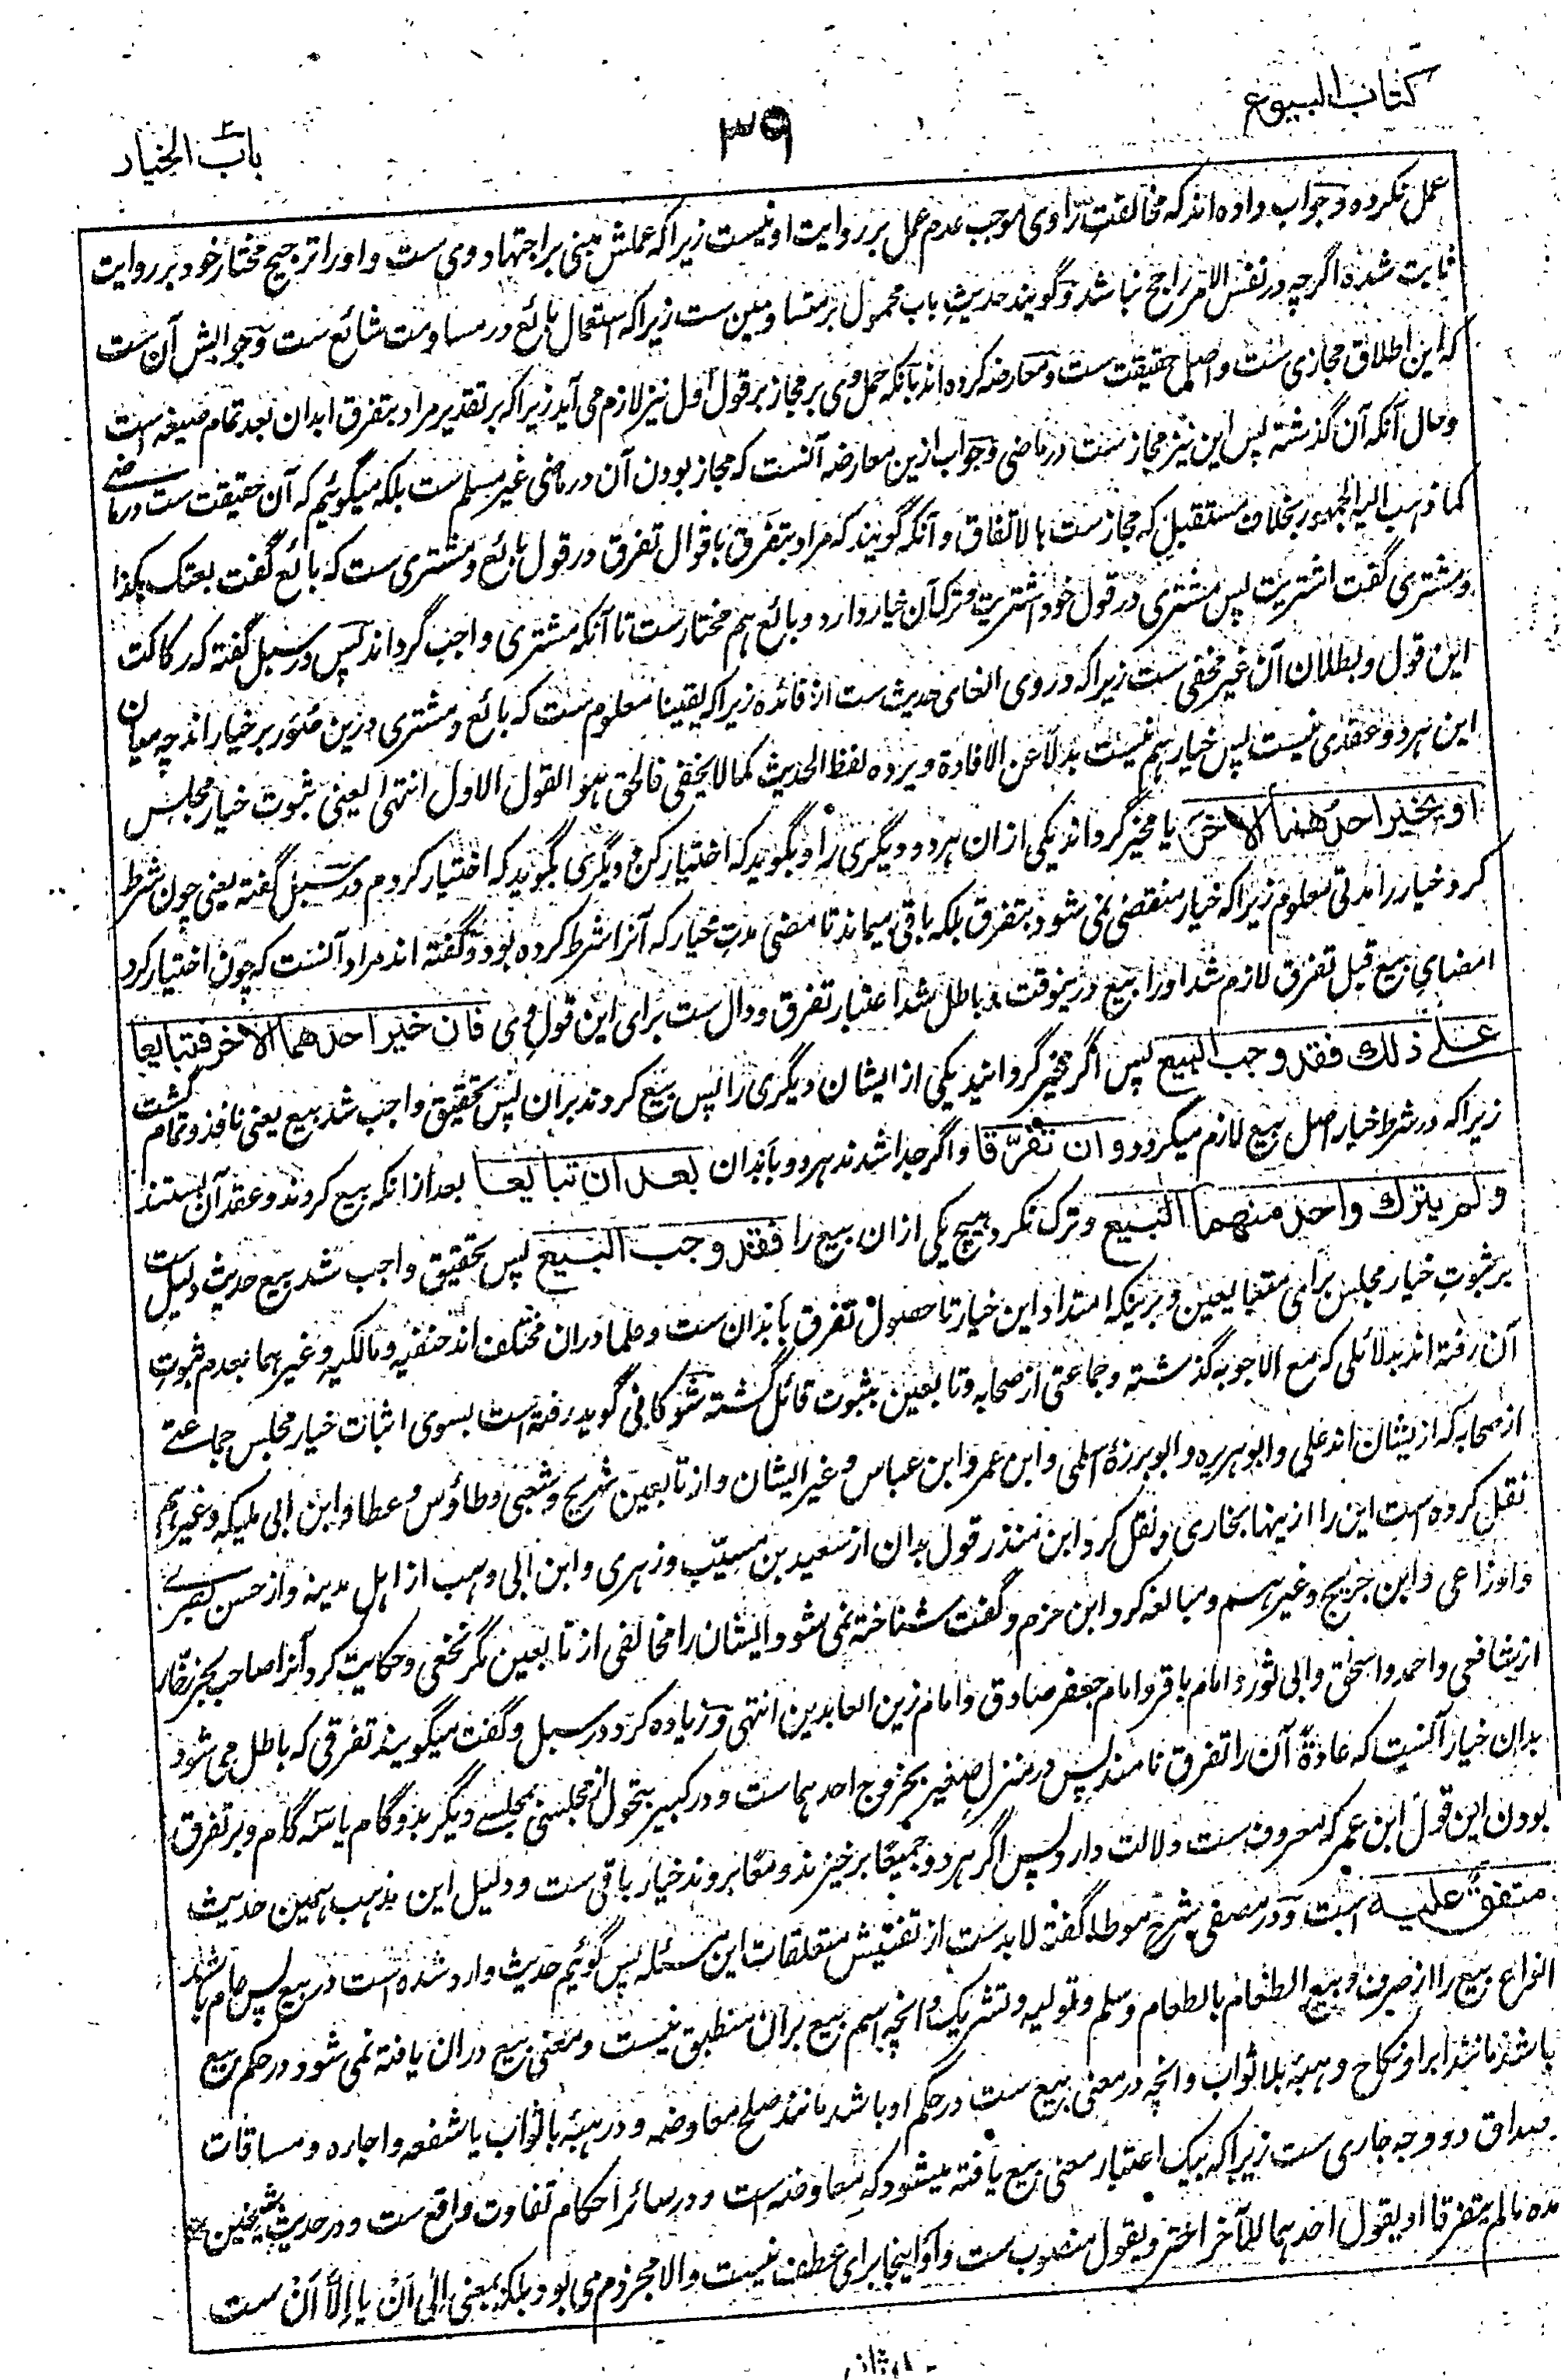 کتاب البیوع
۳۹
باب الخیار
عمل نکرده و جواب داده اند که مخالفت راوی موجب عدم عمل بر روایت او نیست زیرا که عملش مبنی بر اجتهاد وی ست و او را ترجیح مختار خود بر روایت
ثابت شده اگرچه در نفس الامر راجح نباشد و گویند حدیث باب محمول بر متساومین ست زیرا که استعمال بائع در مساومت شائع ست و جوابش آن ست
که این اطلاق مجازی ست و اصل حقیقت ست و معارضه کرده اند بآنکه حمل وی بر مجاز بر قول اول نیز لازم می آید زیرا که بر تقدیر مراد بتفرق ابدان بعد تمام صیغه است
و حال آنکه آن گذشته پس این نیز مجاز ست در ماضی و جواب ازین معارضه آنست که مجاز بودن آن در ماضی غیر مسلم ست بلکه میگوئیم که آن حقیقت ست در ماضی
کما ذهب الیه الجمهور بخلاف مستقبل که مجاز ست بالاتفاق و آنکه گویند که مراد بتفرق باقوال تفرق در قول بائع و مشتری ست که بائع گفت بعتک بکذا
و مشتری گفت اشتریت پس مشتری در قول خود اشتریت و ترک آن خیار دارد و بائع هم مختار ست تا آنکه مشتری واجب گرداند پس در سبل گفته که رکاکت
این قول و بطلان آن غیر مخفی ست زیرا که در وی الغای حدیث ست از فائده زیرا که یقینا معلوم ست که بائع و مشتری درین صور بر خیار اند چه میان
این هر دو عقدی نیست پس خیار هم نیست بدلا عن الافادة و یرده لفظ الحدیث کما لا یخفی فالحق هو القول الاول انتهی یعنی ثبوت خیار مجلس
او یخیر احدهما الآخر یا مخیر گرداند یکی ازان هر دو دیگری را و بگوید که اختیار کن و دیگری بگوید که اختیار کردم در سبل گفته یعنی چون شرط
کرد خیار را مدتی معلوم زیرا که خیار منقضی نمی شود بتفرق بلکه باقی میماند تا مضی مدت خیار که آنرا شرط کرده بود و گفته اند مراد آنست که چون اختیار کرد
امضای بیع قبل تفرق لازم شد او را بیع درینوقت و باطل شد اعتبار تفرق و دال ست برای این قول وی فان خیر احدهما الآخر فتبایعا
علے ذلك فقد وجب البیع پس اگر مخیر گردانید یکی از ایشان دیگری را پس بیع کردند بران پس بتحقیق واجب شد بیع یعنی نافذ و تمام گشت
زیرا که در شرط خیار اصل بیع لازم میگردد و ان تفرّقا و اگر جدا شدند هر دو بابدان بعد ان تبایعا بعد ازانکه بیع کردند و عقد آن بستند
و لم یترك واحد منهما البیع و ترک نکرد هیچ یکی ازان بیع را فقد وجب البیع پس بتحقیق واجب شد بیع حدیث دلیل ست
بر ثبوت خیار مجلس برای متبایعین و برینکه امتداد این خیار تا حصول تفرق بابدان ست و علما دران مختلف اند حنفیه و مالکیه و غیرهما بعدم ثبوت
آن رفته اند بدلائلی که مع الاجوبه گذشته و جماعتی از صحابه و تابعین بثبوت قائل گشته شوکانی گوید رفته است بسوی اثبات خیار مجلس جماعتے
از صحابه که ازیشان اند علی و ابو هریره و ابو برزهٔ اسلمی و ابن عمر و ابن عباس و غیر ایشان و از تابعین شریح و شعبی و طاؤس و عطا و ابن ابی ملیکه و غیرهم
نقل کرده است این را ازینها بخاری و نقل کرد ابن منذر قول بدان از سعید بن مسیّب و زهری و ابن ابی وهب از اهل مدینه و از حسن بصرے
و اوزاعی و ابن جریج و غیرهم و مبالغه کرد ابن حزم و گفت شناخته نمی شود ایشان را مخالفی از تابعین مگر نخعی و حکایت کرد آنرا صاحب بحر زخّار
از شافعی و احمد و اسحٰق و ابی ثور و امام باقر و امام جعفر صادق و امام زین العابدین انتهی و زیاده کرد در سبل و گفت میگویند تفرقی که باطل می شود
بدان خیار آنست که عادةً آن را تفرق نامند پس در منزل صغیر بخروج احدهما ست و در کبیر بتحول از مجلسی بمجلسے دیگر بدو گام یا سه گام و بر تفرق
بودن این قول ابن عمر که معروف ست دلالت دارد پس اگر هر دو جمیعًا برخیزند و معًا بروند خیار باقی ست و دلیل این مذهب همین حدیث
متفقٌ علیه است و در مصفی شرح موطا گفته لابد ست از تفتیش متعلقات این مسئله پس گوئیم حدیث وارد شده است در بیع پس عام باشد
انواع بیع را از صرف و بیع الطعام بالطعام و سلم و تولیه و تشریک و آنچه اسم بیع بران منطبق نیست و معنی بیع دران یافته نمی شود در حکم بیع
باشد مانند ابرا و نکاح و هبهٔ بلا ثواب و انچه در معنی بیع ست در حکم او باشد مانند صلح معاوضه و در هبهٔ باثواب یا شفعه و اجاره و مساقات
صداق دو وجه جاری ست زیرا که بیک اعتبار معنی بیع یافته میشود که معاوضه است و در سائر احکام تفاوت واقع ست و در حدیث شیخین
مده ما لم یتفرقا او یقول احدهما للآخر اختر و یقول منصوب ست و او اینجا برای عطف نیست و الا مجزوم می بود بلکه بمعنی اِلٰی اَنْ یا اِلَّا اَنْ ست